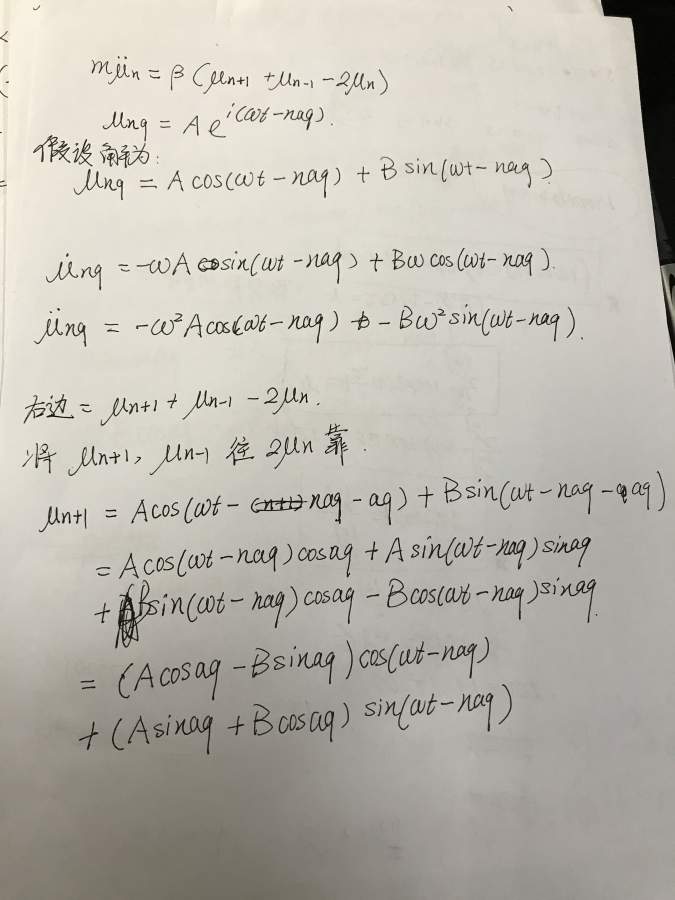 mμ̈n = β(μn+1 + μn-1 - 2μn)
μnq = A e^i(ωt-naq).
假设解为:
μnq = A cos(ωt-naq) + B sin(ωt-naq)
μ̇nq = -ωA sin(ωt-naq) + Bω cos(ωt-naq).
μ̈nq = -ω²A cos(ωt-naq) - Bω² sin(ωt-naq).
右边 = μn+1 + μn-1 - 2μn.
将 μn+1, μn-1 往 2μn 靠.
μn+1 = A cos(ωt - naq - aq) + B sin(ωt - naq - aq)
= A cos(ωt-naq) cosaq + A sin(ωt-naq) sinaq
+ B sin(ωt-naq) cosaq - B cos(ωt-naq) sinaq
= (A cosaq - B sinaq) cos(ωt-naq)
+ (A sinaq + B cosaq) sin(ωt-naq)